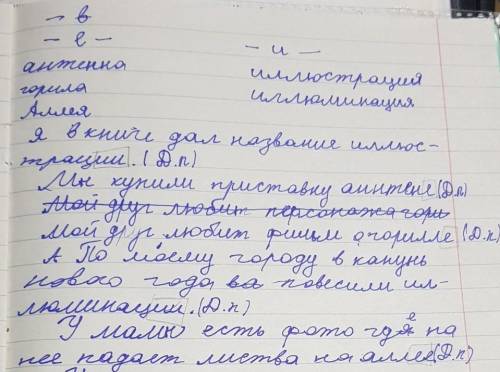 - в
- е -
- и -
антенна
горила
Аллея
иллюстрация
иллюминация
Я в книге дал название иллюс-
трации. (Д.п)
Мы купили приставку аинтене (Д.п)
Мой друг любит персонажа гори
Мой друг любит фильм о горилле (Д.п)
А По моему городу в канунь
нового года ва повесили ил-
люминации. (Д.п)
У мамы есть фото где на
нее падает листва на аллея (Д.п)